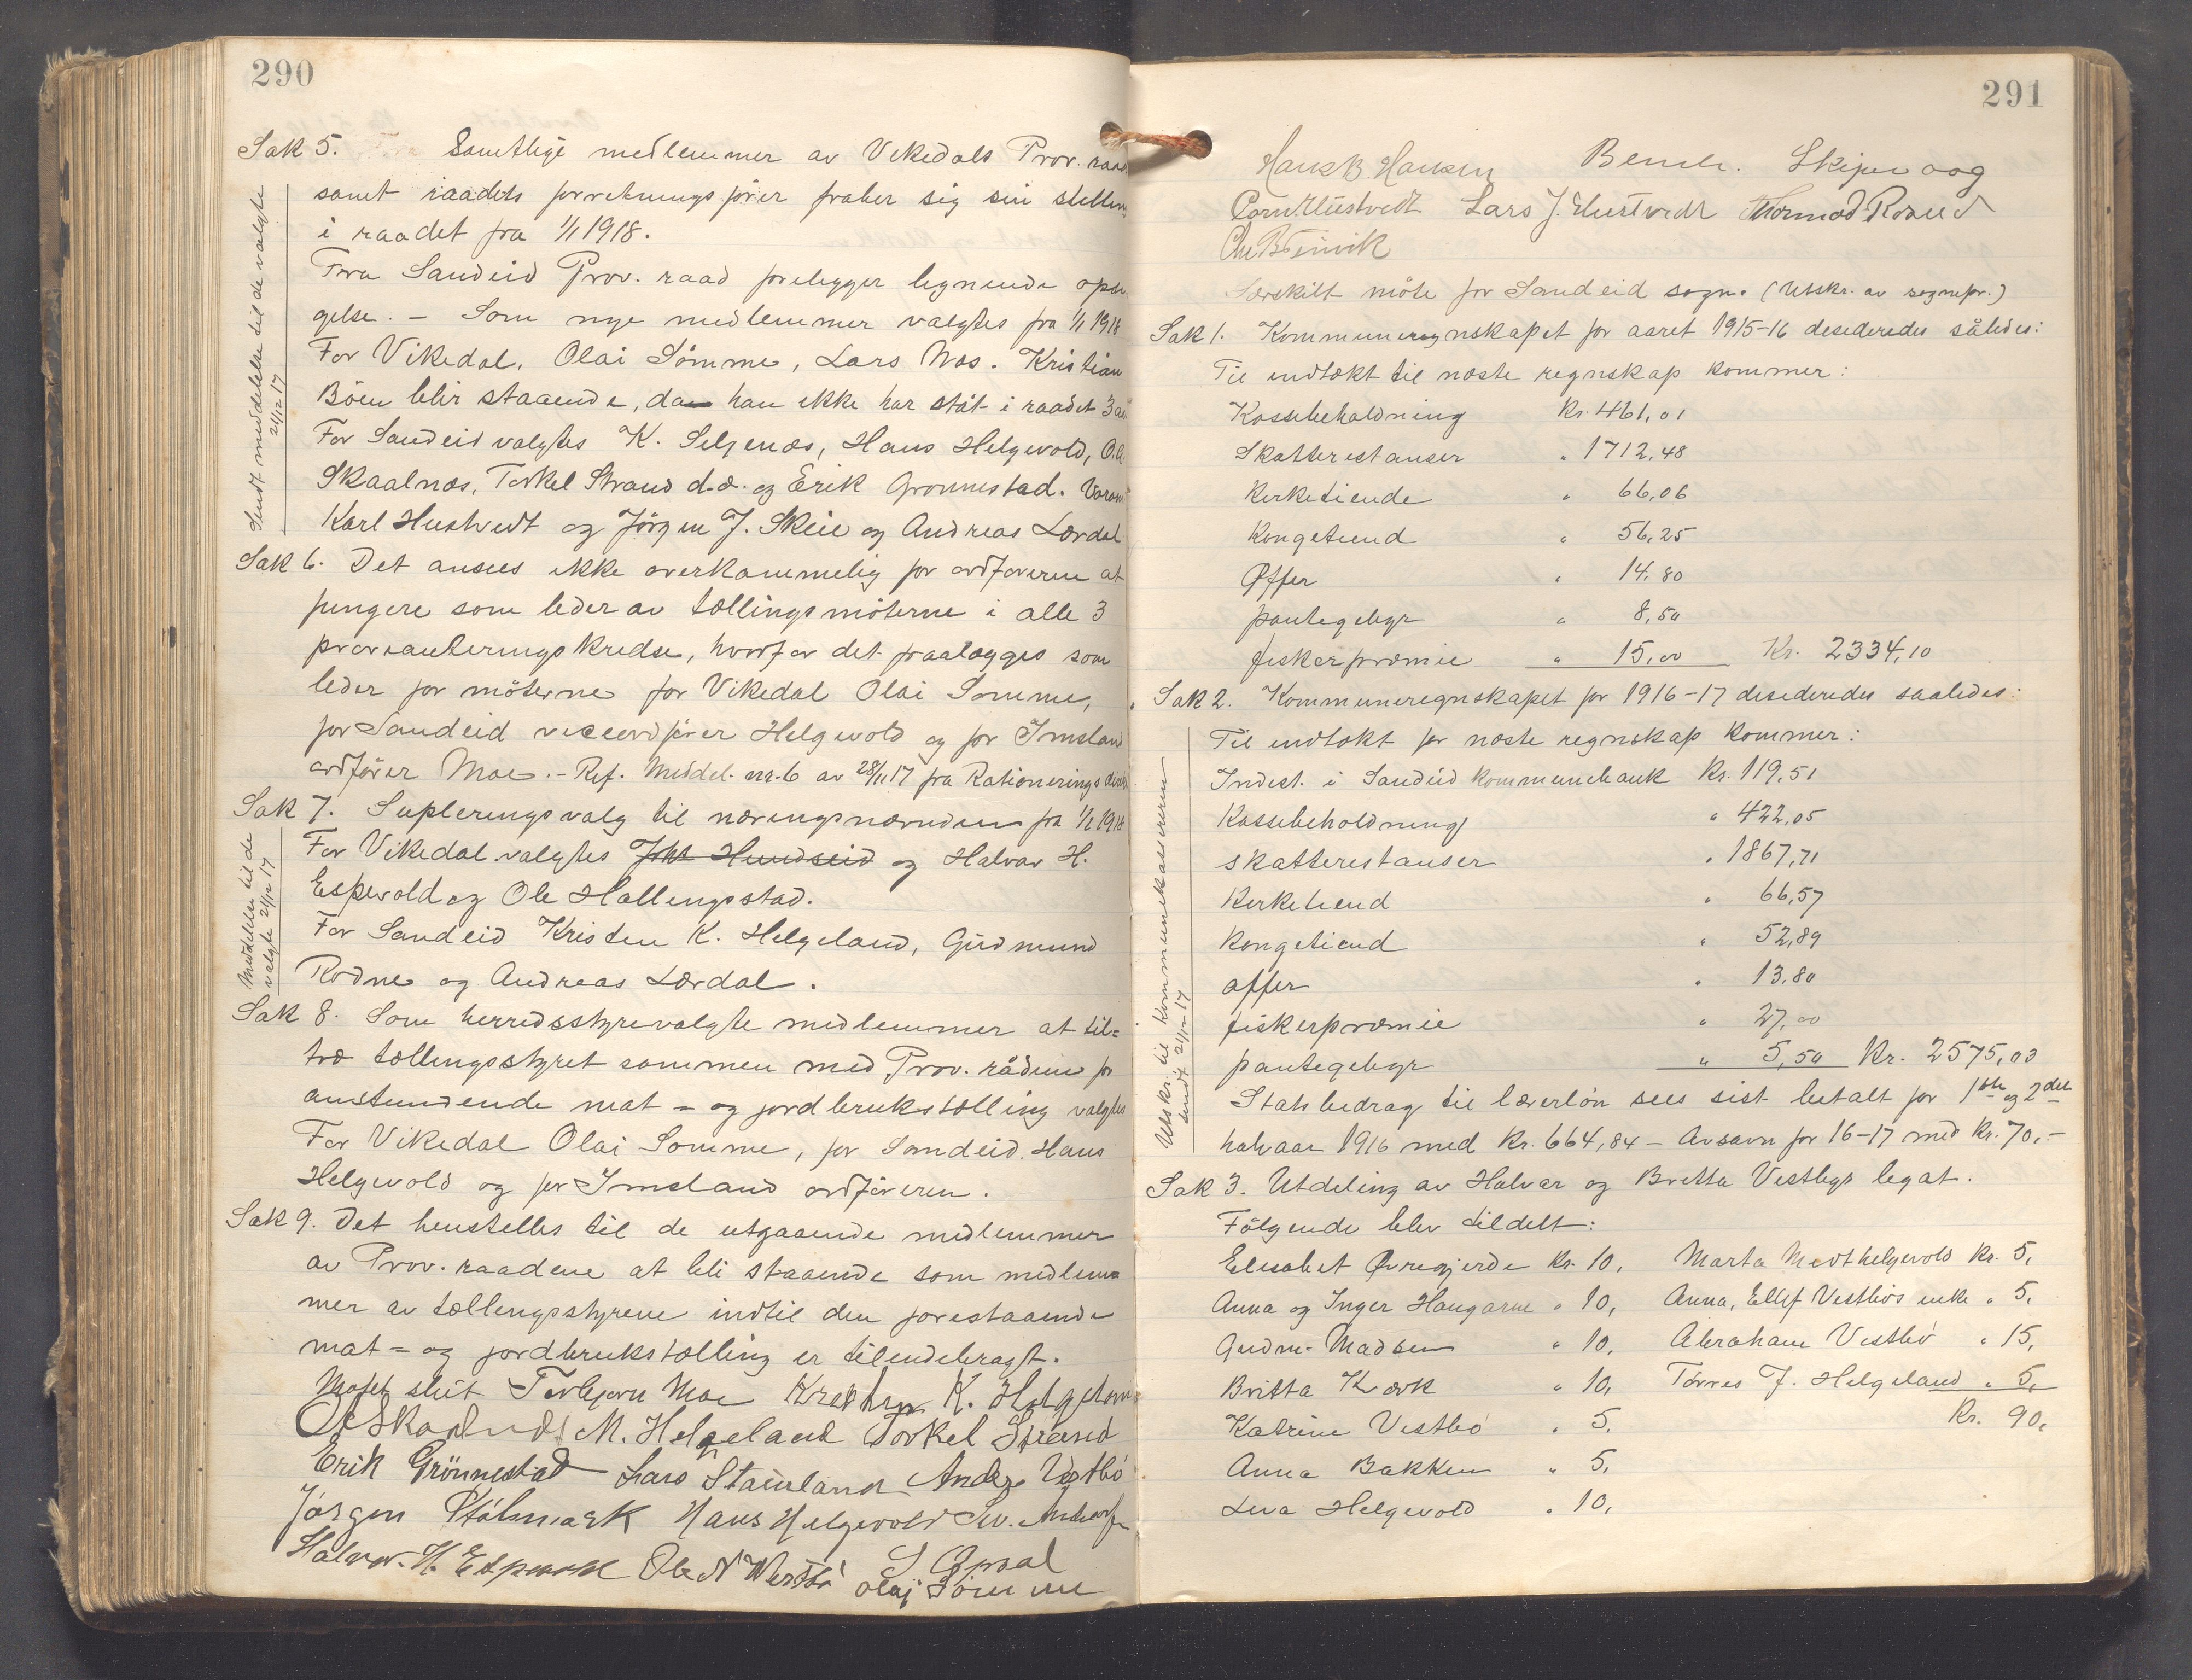 290
Sak 5. Samtlige medlemmer av Vikedals Prov. raad
samt raadets forretningsfører fraber sig sin stilling
i raadet fra 1/1 1918.
Fra Sandeid Prov. raad forelegger lignende opsi
gelse. - Som nye medlemmer valgtes fra 1/1 1918
For Vikedal, Olai Sømme, Lars Næs. Kristian
Böen blir staaende, da han ikke har ståt i raadet 3 aar
For Sandeid valgtes K. Seljenæs, Hans Helgevold, O.A.
Skaalnæs, Torkel Strand d.æ. og Erik Grønnestad. Varam
Karl Hustvedt og Jörgen J. Skeie og Andreas Lærdal
Sendt meddelelse til de valgte
21/12 17
Sak 6. Det ansees ikke overkommelig for ordføreren at
fungere som leder av tællingsmöterne i alle 3
provianteringskredse, hvorfor det paalægges som
leder for möterne for Vikedal Olai Sømme,
for Sandeid viceordfører Helgevold og for Imsland
ordfører Moe. - Ref. Meddel. nr. 6 av 28/11 17 fra Rationeringsdirek
Sak 7. Supleringsvalg til næringsnævnden fra 1/1 1918
For Vikedal valgtes Joh Hundseid og Halvar H.
Espevold og Ole Hallengsstad.
For Sandeid Kristen K. Helgeland, Gudmund
Rodne og Andreas Lærdal.
Meddelelse til de
valgte 21/12 17
Sak 8. Som herredsstyrevalgte medlemmer at til=
træ tællingsstyret sammen med Prov. rådene for
anstundende mat- og jordbrukstælling valgtes
For Vikedal Olai Sømme, for Sandeid Hans
Helgevold og for Imsland ordføreren.
Sak 9. Det henstelles til de utgaaende medlemmer
av Prov. raadene at bli staaende som medlem=
mer av tællengsstyrene indtil den forestaaende
mat= og jordbrukstælling er tilendebragt.
Møtet slut Torbjørn Moe Kristen K. Helgeland
M. Helgeland Torkel Strand
Erik Grönnestad Lars Stainland Anders Vestbö
Jörgen Stölsmark Hans Helgevold
Halvor H. Espevold Ole N Westbö S Opsal
Olaj Sömme
291
Hans B. Hansen Bendik Skipevaag
Hustvedt Lars J. Hustvedt Thormod
Særskilt möte for Sandeid sogn. (Utskr. av sognepr.)
Sak 1. Kommuneregnskapet for aaret 1915-16 desideredes således:
Til indtækt til næste regnskap kommer:
Kassebeholdning Kr. 461,01
Skatterestanser " 1712,48
Kirketiende " 66,06
Kongetiend " 56,25
Offer " 14,80
pantegebyr " 8,50
fiskerpræmie " 15,00 Kr. 2334,10
Sak 2. Kommuneregnskapet for 1916-17 desideredes saaledes:
Til indtækt for næste regnskap kommer:
Indest. i Sandeid kommunebank Kr. 119,51
Kassebeholdning " 422,05
skatterestanser " 1867,71
Kirketiend " 66,57
Kongetiend " 52,89
offer " 13,80
fiskerpræmie " 27,00
pantegebyr " 5,50 Kr. 2575,03
Statsbidrag til lærerløn sees sist betalt for 1ste og 2det
halvaar 1916 med Kr. 664,84 - Avsavn for 16-17 med Kr. 70,-
Utskr. til kommunekassereren
sendt 21/12 17
Sak 3. Utdeling av Halvar og Britta Vestbys legat.
Fölgende blev tildelt:
Elisabet Øvregjerde Kr. 10, Marta Medhelgevold Kr. 5,
Anna og Inger Haugarne " 10, Anna, Ellef Vestbös enke " 5,
Gudm. Madsen " 10, Abraham Vestbö " 15,
Britta Kærk " 10, Tørres J. Helgeland " 5,
Katrine Vestbö " 5, Kr. 90,
Anna Bakken " 5,
Lena Helgevold " 10,